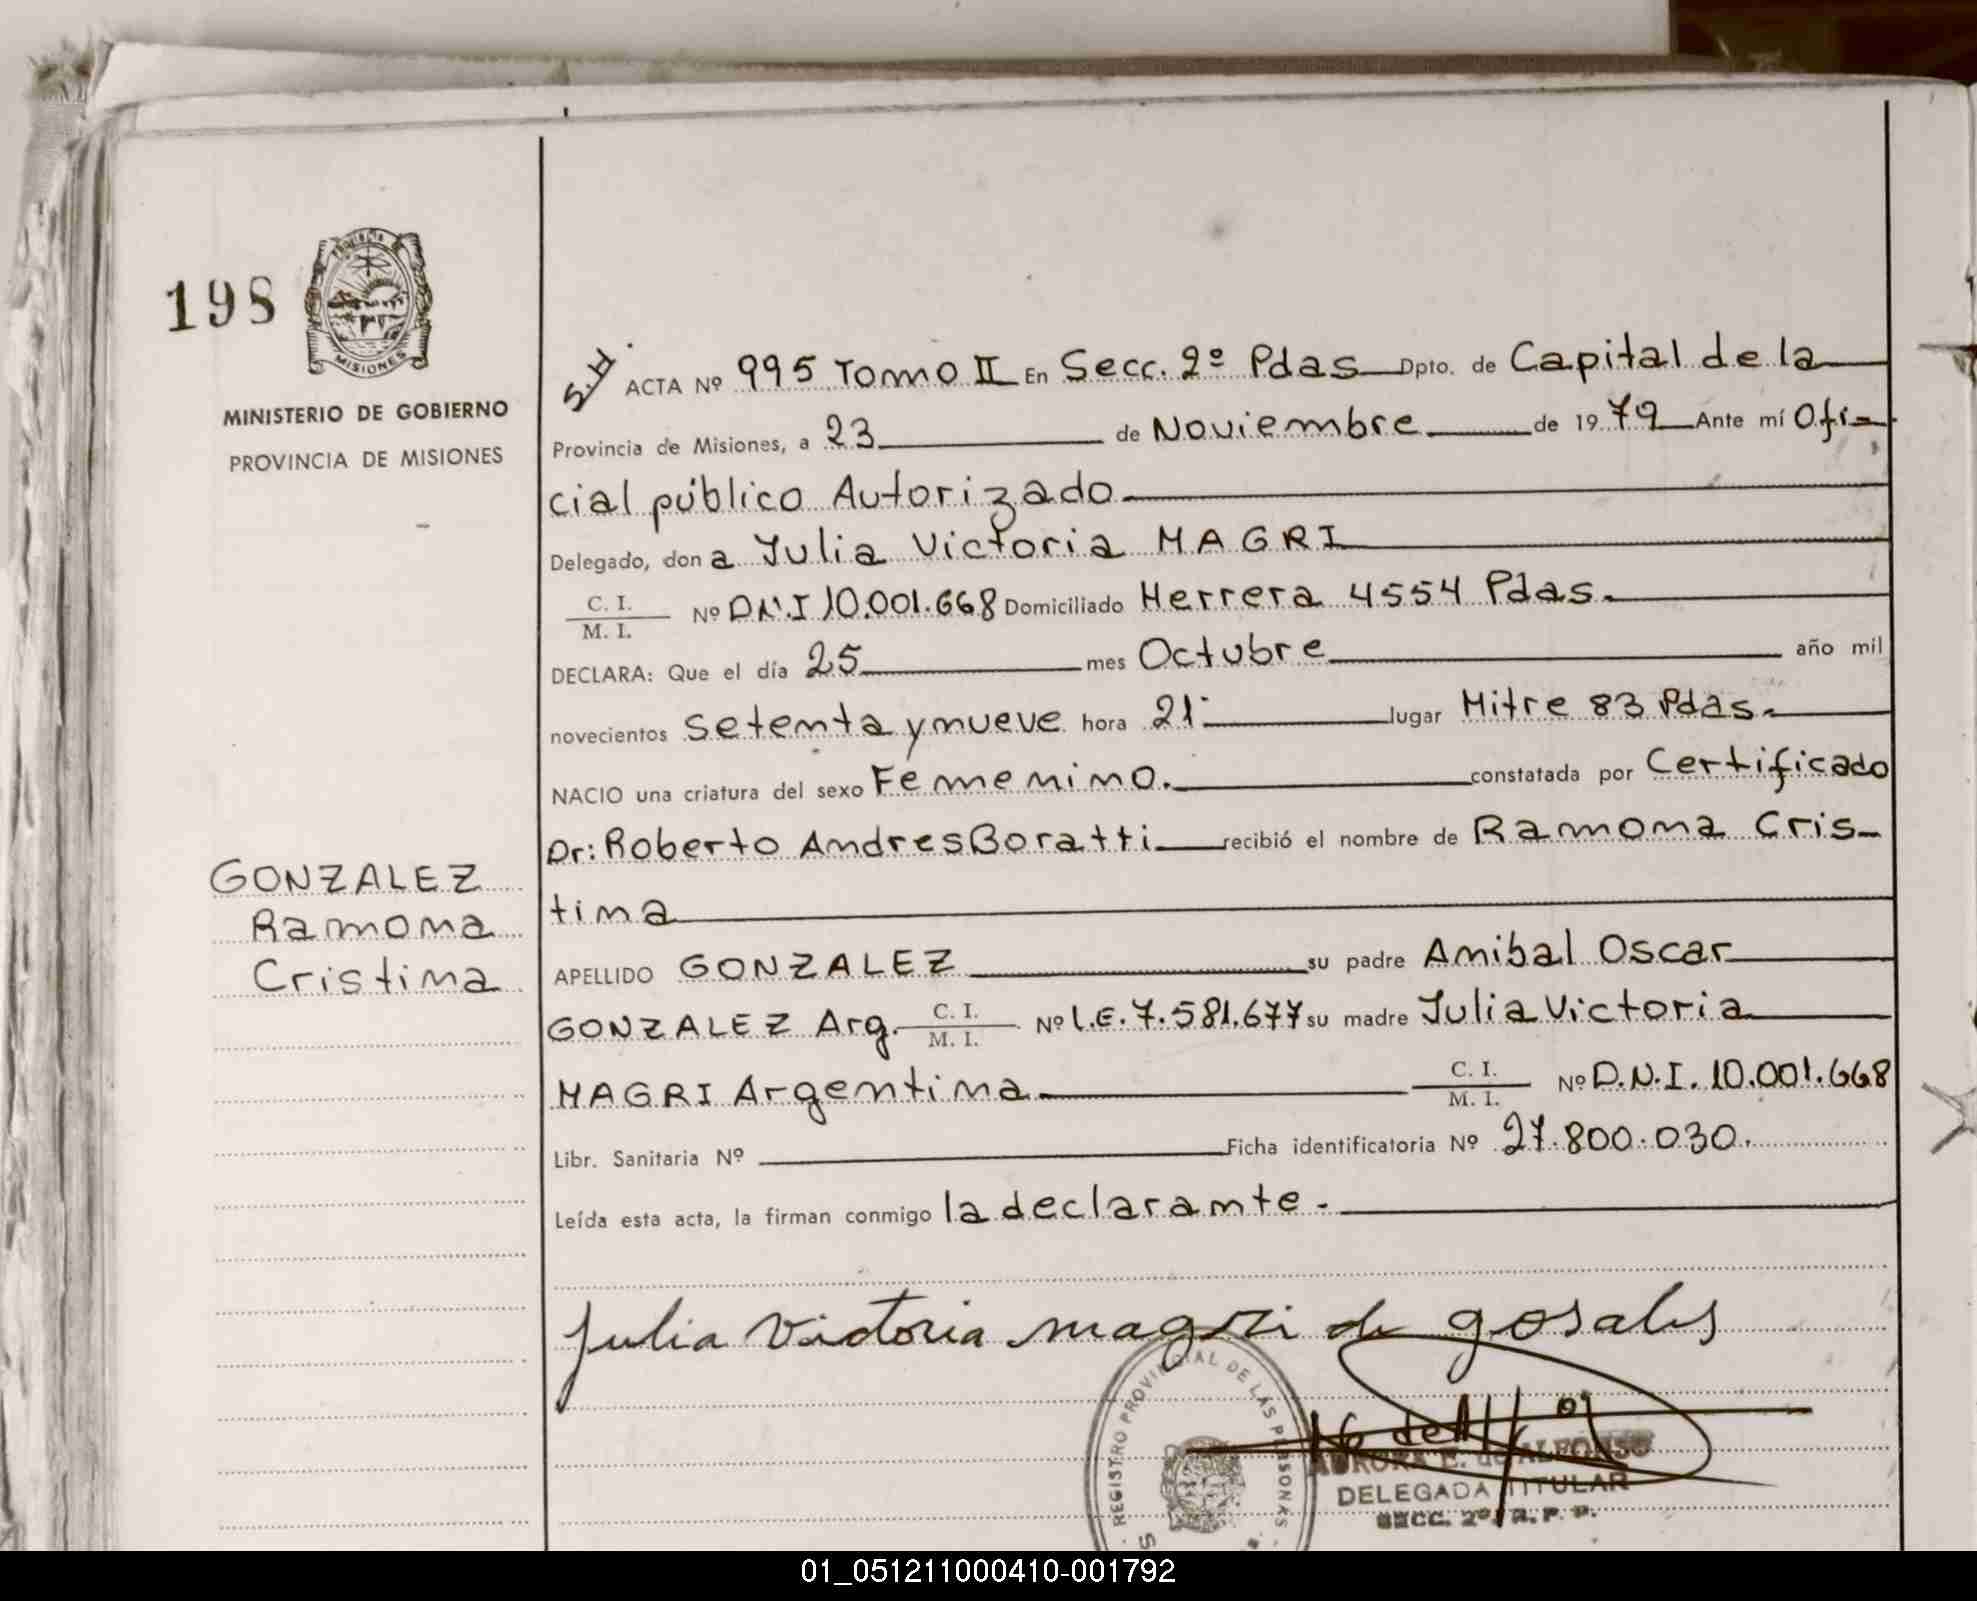 198
PROVINCIA DE
MISIONES
MINISTERIO DE GOBIERNO
PROVINCIA DE MISIONES
GONZALEZ
Ramona
Cristina
S.H.
ACTA Nº 995 Tomo II En Secc. 2º Pdas Dpto. de Capital de la
Provincia de Misiones, a 23 de Noviembre de 1979 Ante mí Ofi-
cial público Autorizado
Delegado, don a Julia Victoria MAGRI
C. I.
M. I. Nº D.N.I 10.001.668 Domiciliado Herrera 4554 Pdas.
DECLARA: Que el día 25 mes Octubre año mil
novecientos setenta y nueve hora 21 lugar Mitre 83 Pdas.
NACIO una criatura del sexo Femenino. constatada por Certificado
Dr: Roberto Andres Boratti recibió el nombre de Ramona Cris-
tina
APELLIDO GONZALEZ su padre Anibal Oscar
GONZALEZ Arg. C. I.
M. I. Nº L.E. 7.581.677 su madre Julia Victoria
MAGRI Argentina C. I.
M. I. Nº D.N.I. 10.001.668
Libr. Sanitaria Nº Ficha identificatoria Nº 27.800.030.
Leída esta acta, la firman conmigo la declarante.
Julia Victoria magri de gosales
REGISTRO PROVINCIAL DE LAS PERSONAS
AURORA E. de ALFONSO
DELEGADA TITULAR
SECC. 2º R. P. P.
01_051211000410-001792